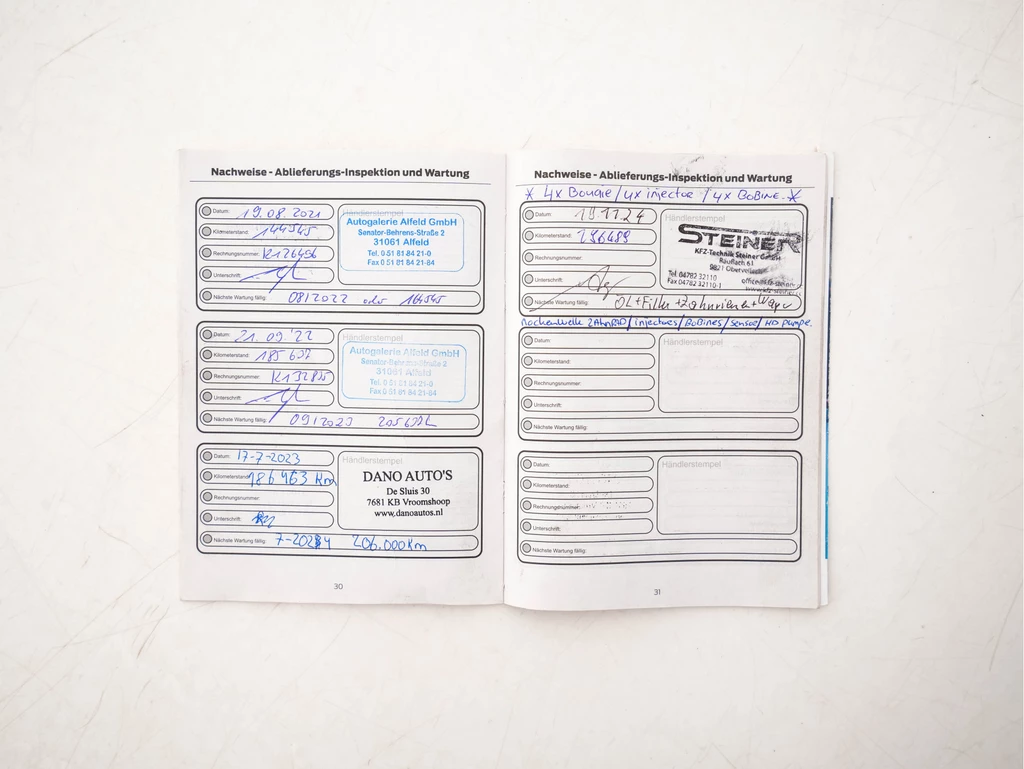 Nachweise - Ablieferungs-Inspektion und Wartung
Datum: 19.08.2021
Kilometerstand: 144545
Rechnungsnummer: K126456
Unterschrift:
Nächste Wartung fällig: 08/2022 oder 164545
Händlerstempel
Autogalerie Alfeld GmbH
Senator-Behrens-Straße 2
31061 Alfeld
Tel. 0 51 81 84 21-0
Fax 0 51 81 84 21-84
Datum: 21.09.'22
Kilometerstand: 185 607
Rechnungsnummer: K132835
Unterschrift:
Nächste Wartung fällig: 09/2023
Händlerstempel
Autogalerie Alfeld GmbH
Senator-Behrens-Straße 2
31061 Alfeld
Tel. 0 51 81 84 21-0
Fax 0 51 81 84 21-84
Datum: 17-7-2023
Kilometerstand: 186 463 Km
Rechnungsnummer:
Unterschrift:
Nächste Wartung fällig: 7-2024 206.000Km
Händlerstempel
DANO AUTO'S
De Sluis 30
7681 KB Vroomshoop
www.danoautos.nl
30
Nachweise - Ablieferungs-Inspektion und Wartung
* 4x Bougie / 4x injector / 4x BoBine *
Datum: 19.11.24
Kilometerstand: 236489
Rechnungsnummer:
Unterschrift:
Nächste Wartung fällig: ÖL + Filter + Zahnriemen +
Händlerstempel
STEINER
KFZ-Technik Steiner GmbH
Rauflach 61
9821 Obervellach
Tel. 04782 32110
Fax 04782 32110-1
Nockenwelle ZAhnRAD / injectors / BoBines / sensor / HD pumpe.
Datum:
Kilometerstand:
Rechnungsnummer:
Unterschrift:
Nächste Wartung fällig:
Händlerstempel
Datum:
Kilometerstand:
Rechnungsnummer:
Unterschrift:
Nächste Wartung fällig:
Händlerstempel
31